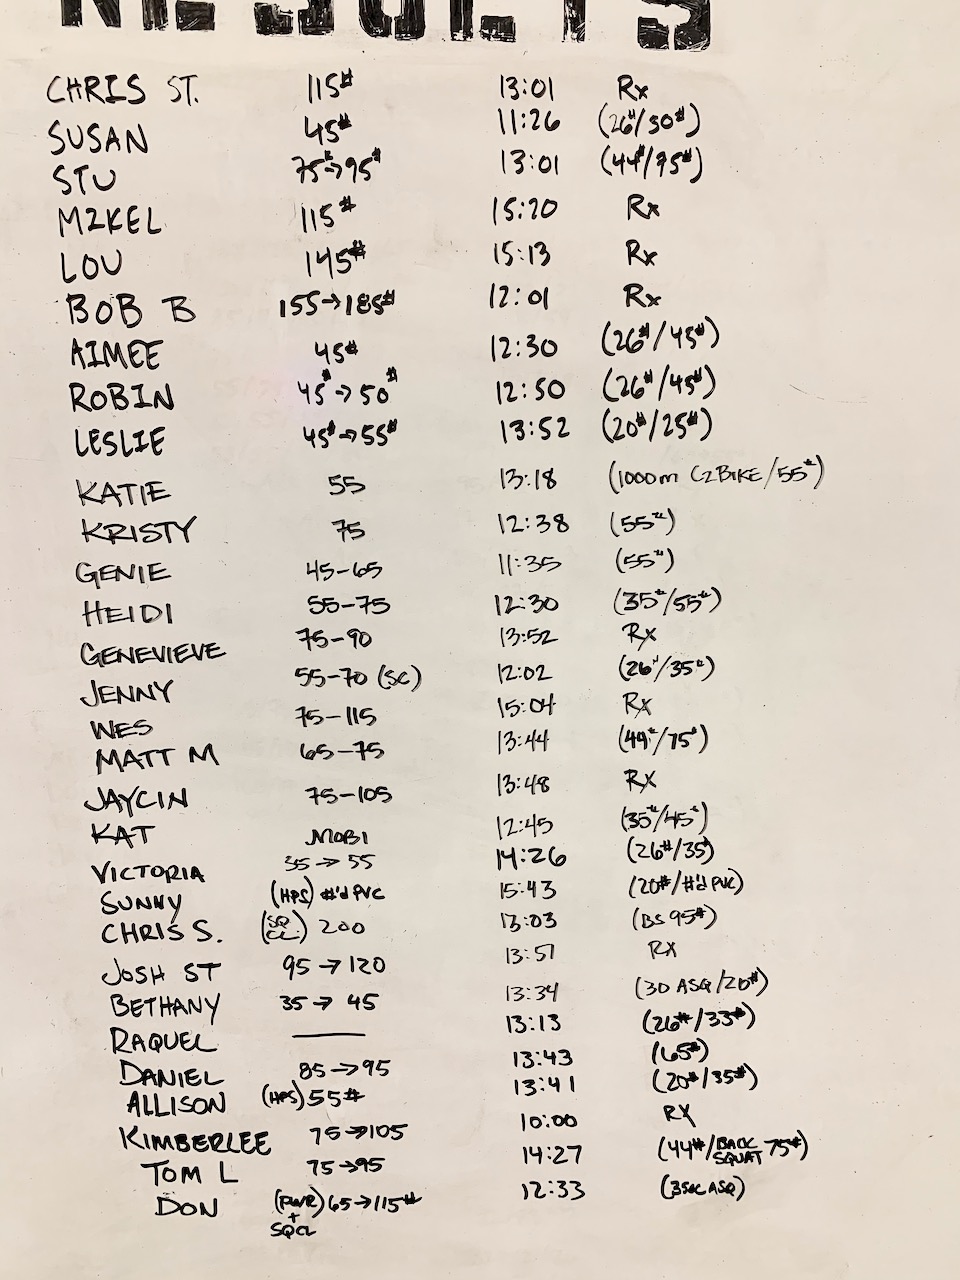 RESULTS
CHRIS ST. 115# 13:01 Rx
SUSAN 45# 11:26 (26#/30#)
STU 75#→95# 13:01 (44#/75#)
M2KEL 115# 15:20 Rx
LOU 145# 15:13 Rx
BOB B 155→185# 12:01 Rx
AIMEE 45# 12:30 (26#/45#)
ROBIN 45#→50# 12:50 (26#/45#)
LESLIE 45#→55# 13:52 (20#/25#)
KATIE 55 13:18 (1000m C2BIKE/55#)
KRISTY 75 12:38 (55#)
GENIE 45-65 11:35 (55#)
HEIDI 55-75 12:30 (35#/55#)
GENEVIEVE 75-90 13:52 Rx
JENNY 55-70 (SC) 12:02 (26#/35#)
WES 75-115 15:04 Rx
MATT M 65-75 13:44 (44#/75#)
JAYCIN 75-105 13:48 RX
KAT MOBI 12:45 (35#/45#)
VICTORIA 35→55 14:26 (26#/35)
SUNNY (HPS) #'d PVC 15:43 (20#/#'d PVC)
CHRIS S. (SQ CL) 200 13:03 (BS 95#)
JOSH ST 95→120 13:51 RX
BETHANY 35→45 13:34 (30 ASQ/20#)
RAQUEL — 13:13 (26#/33#)
DANIEL 85→95 13:43 (65#)
ALLISON (HPS) 55# 13:41 (20#/35#)
KIMBERLEE 75→105 10:00 RX
TOM L 75→95 14:27 (44#/BACK SQUAT 75#)
DON (PWR + SQCL) 65→115# 12:33